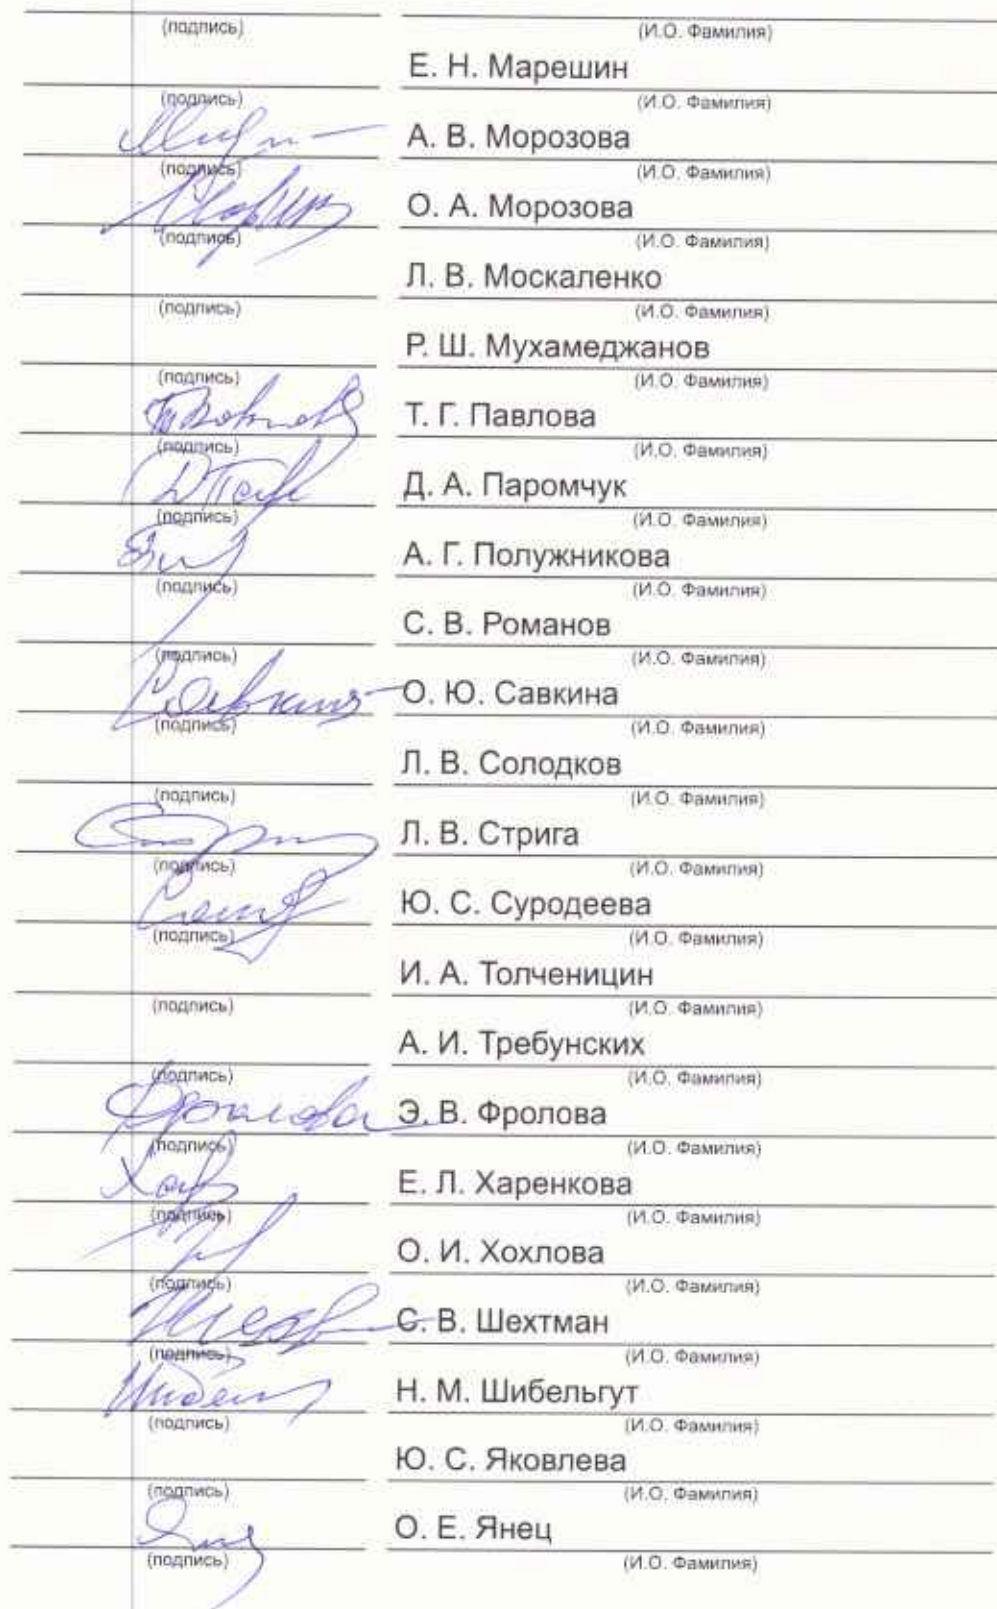 (подпись) (И.О. Фамилия)
Е. Н. Марешин
(подпись) (И.О. Фамилия)
А. В. Морозова
(подпись) (И.О. Фамилия)
О. А. Морозова
(подпись) (И.О. Фамилия)
Л. В. Москаленко
(подпись) (И.О. Фамилия)
Р. Ш. Мухамеджанов
(подпись) (И.О. Фамилия)
Т. Г. Павлова
(подпись) (И.О. Фамилия)
Д. А. Паромчук
(подпись) (И.О. Фамилия)
А. Г. Полужникова
(подпись) (И.О. Фамилия)
С. В. Романов
(подпись) (И.О. Фамилия)
Савкина О. Ю. Савкина
(подпись) (И.О. Фамилия)
Л. В. Солодков
(подпись) (И.О. Фамилия)
Л. В. Стрига
(подпись) (И.О. Фамилия)
Ю. С. Суродеева
(подпись) (И.О. Фамилия)
И. А. Толченицин
(подпись) (И.О. Фамилия)
А. И. Требунских
(подпись) (И.О. Фамилия)
Фролова Э. В. Фролова
(подпись) (И.О. Фамилия)
Е. Л. Харенкова
(подпись) (И.О. Фамилия)
О. И. Хохлова
(подпись) (И.О. Фамилия)
С. В. Шехтман
(подпись) (И.О. Фамилия)
Н. М. Шибельгут
(подпись) (И.О. Фамилия)
Ю. С. Яковлева
(подпись) (И.О. Фамилия)
О. Е. Янец
(подпись) (И.О. Фамилия)